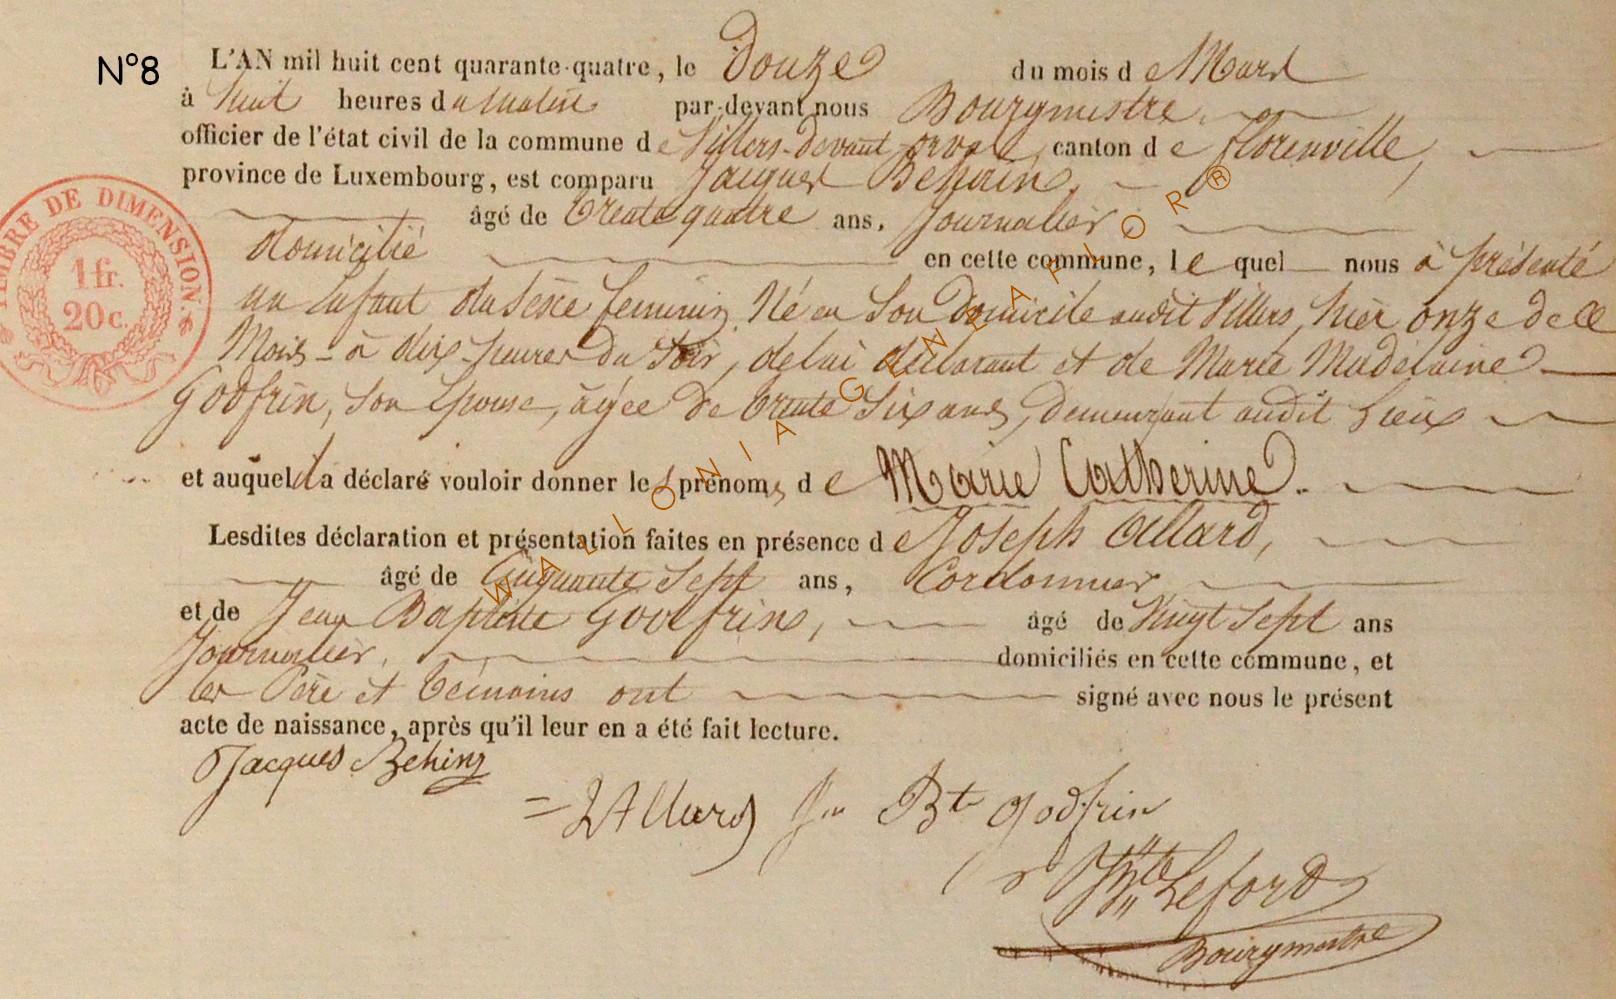 N°8
L'AN mil huit cent quarante-quatre, le Douze du mois de Mars
à huit heures du matin par-devant nous Bourgmestre
officier de l'état civil de la commune de Villers-devant-orval, canton de florenville,
province de Luxembourg, est comparu Jacques Behin,
âgé de trente quatre ans, Journalier
domicilié en cette commune, lequel nous à présenté
un Enfant du sexe feminin, Né en son domicile audit Villers, hier onze de ce
Mois - à dix heures du soir, de lui déclarant et de Marie Madelaine
Godfrin, son Epouse, âgée de trente six ans, demeurant audit Lieux
et auquel il a déclaré vouloir donner les prénoms de Marie Catherine.
Lesdites déclaration et présentation faites en présence de Joseph Allard,
âgé de Cinquante Sept ans, Cordonnier
et de Jean Baptiste Godfrin, âgé de Vingt Sept ans
Journalier, domiciliés en cette commune, et
les Père et témoins ont signé avec nous le présent
acte de naissance, après qu'il leur en a été fait lecture.
Jacques Behin
Allard Jn Bt godfrin
Leford
Bourgmestre
TIMBRE DE DIMENSION.
1 fr.
20 c.
WALLONIA GENEAFLOR®